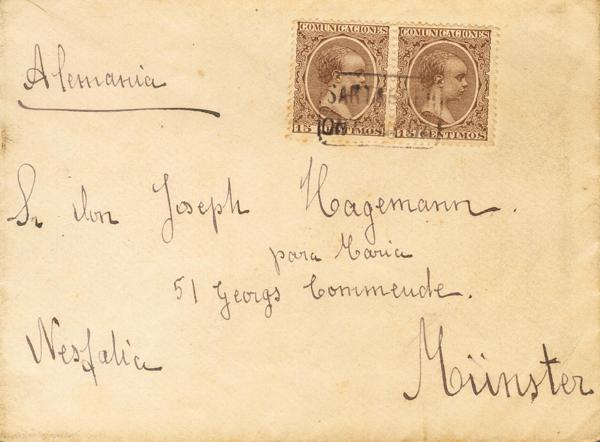 COMUNICACIONES COMUNICACIONES
15 CENTIMOS 15 CENTIMOS
Alemania
Sr don Joseph Hagemann.
para Maria
51 Georgs Commende.
Wesfalia
Münster